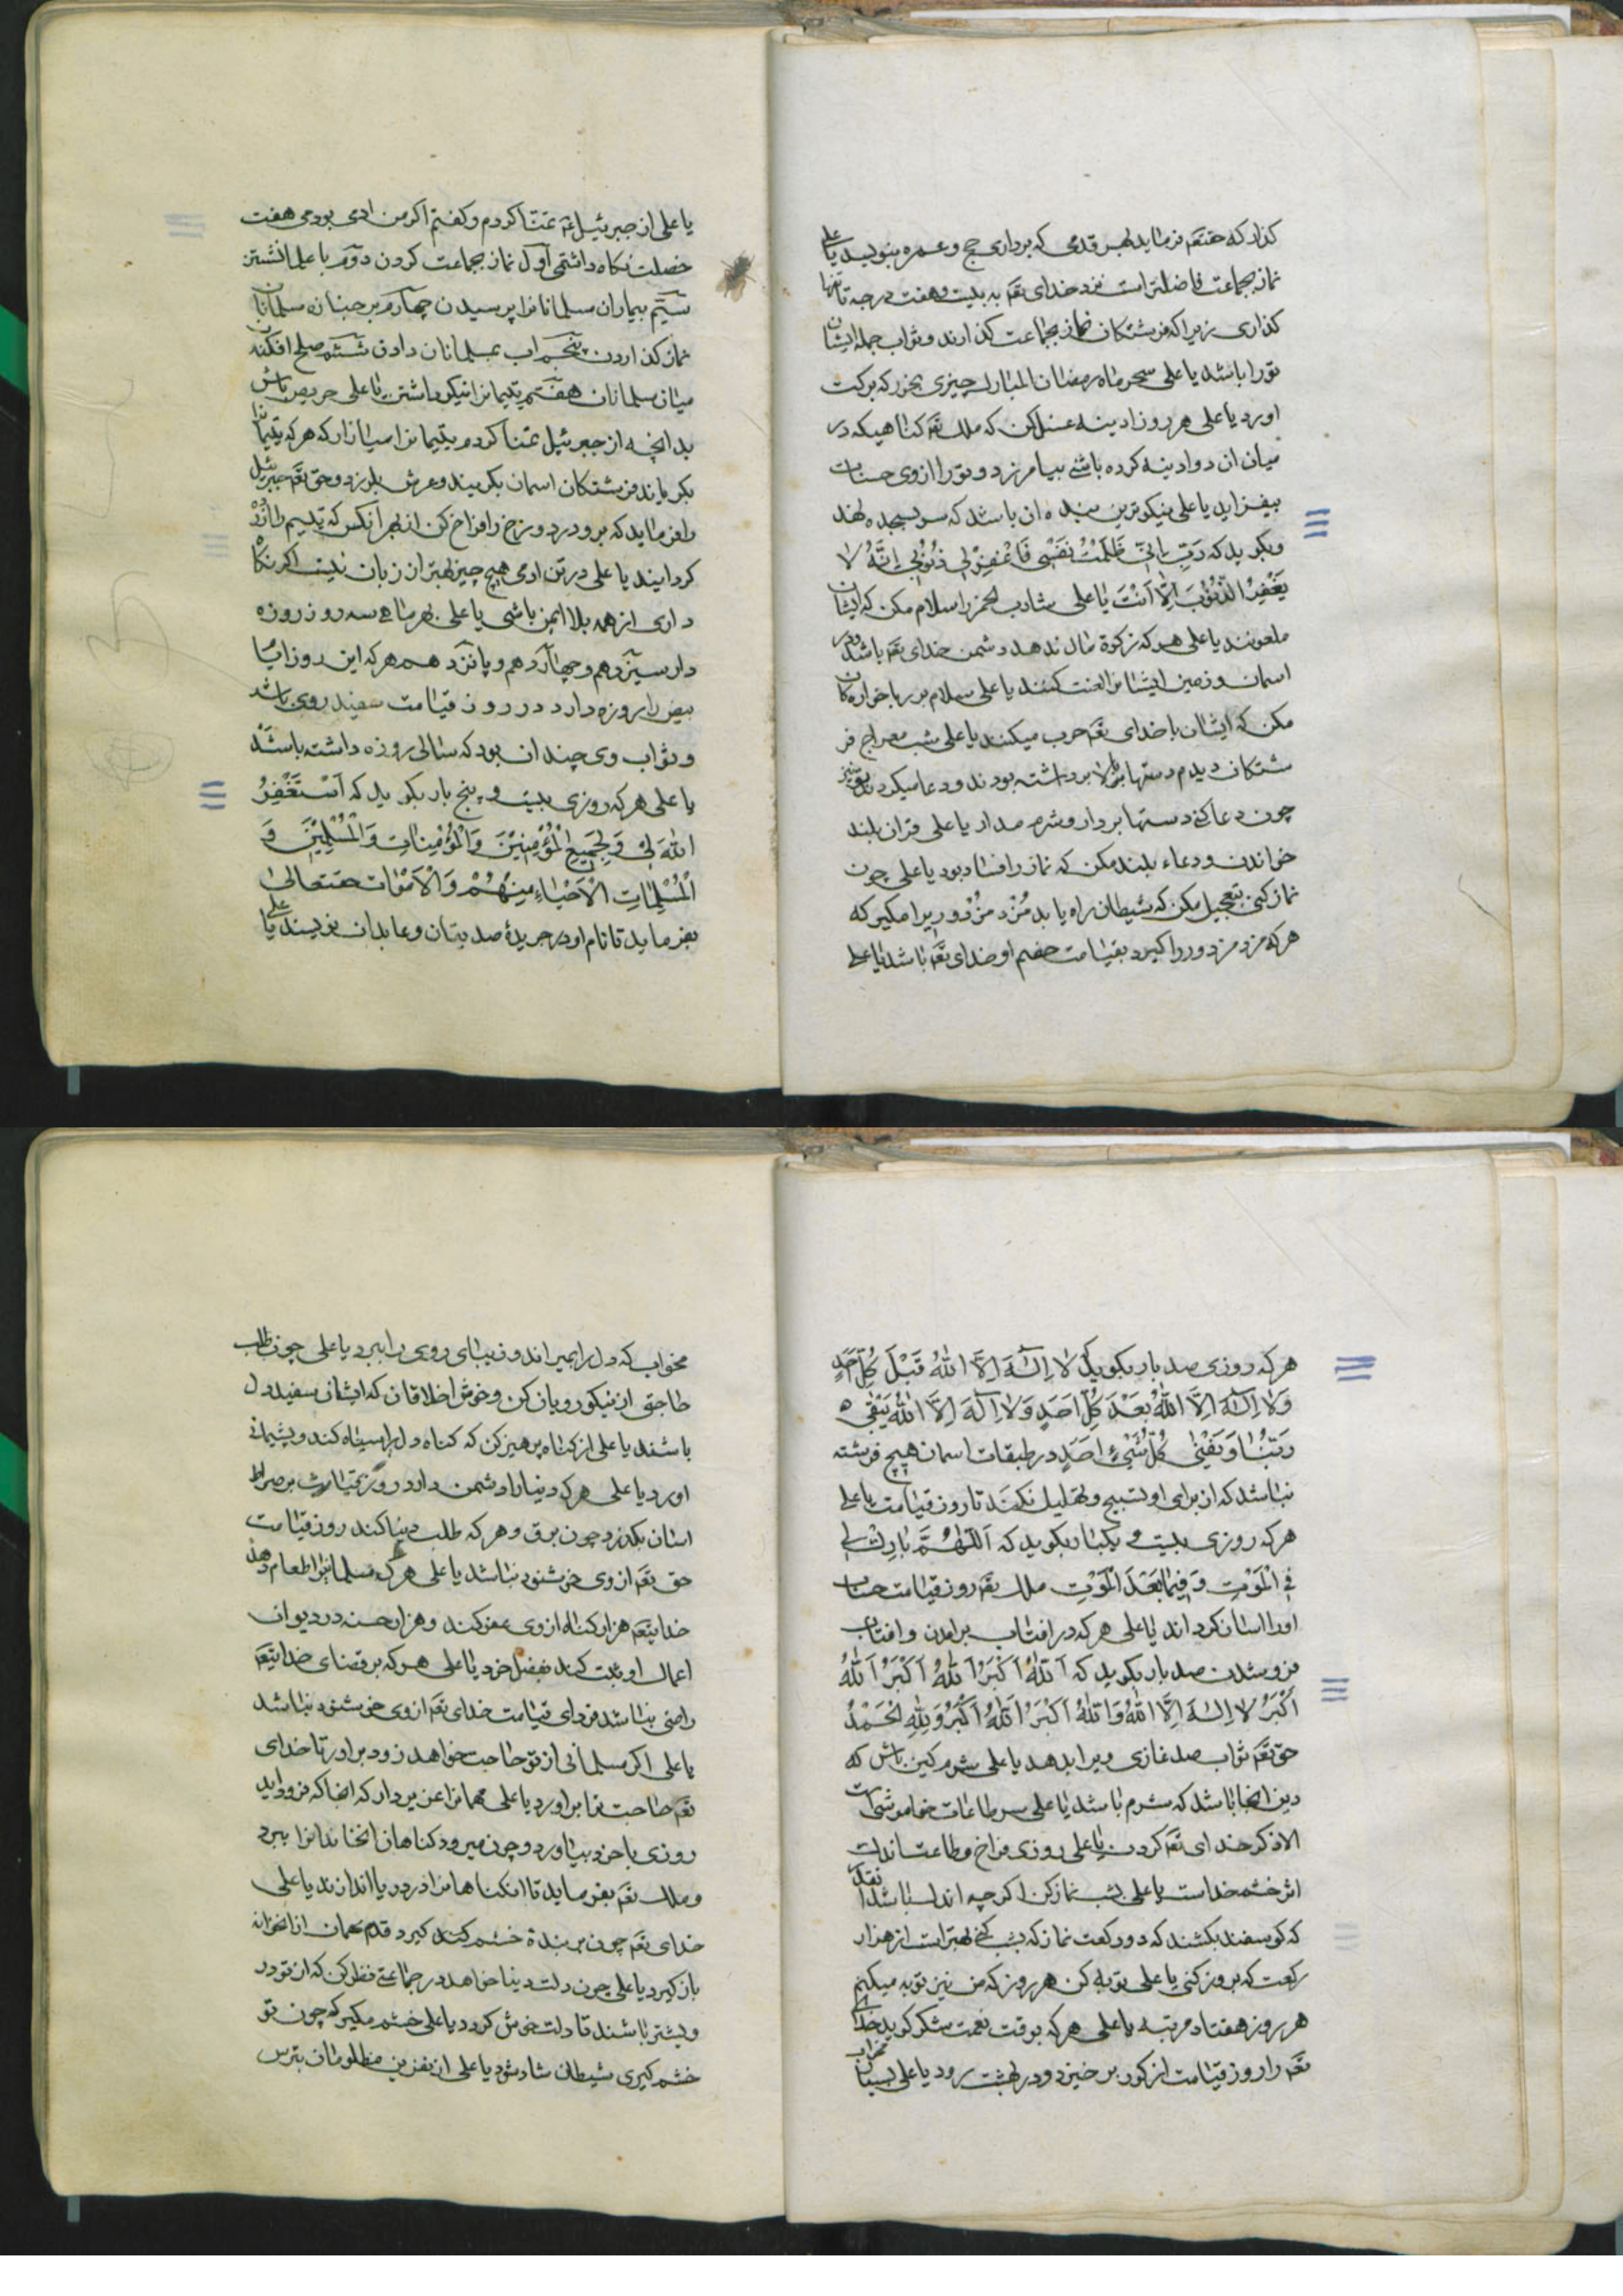 کذار که حقتعم فرماید بهر قدمی که برداری حج و عمره بنویسد یا علی
نماز بجماعت فاضلتر است نزد خدای تعم به بیست و هفت درجه تا تنها
کذاری زیرا که فرشتکان نماز بجماعت کذارند و ثواب جمله ایشان
تو را باشد یا علی سحر ماه رمضان المبارک چیزی بخور که برکت
اورد یا علی هر روز ادینه غسل کن که ملک تعم کناهیکه در
میان ان دو ادینه کرده باشی بیامرزد و تو را از وی حسنات
بیفزاید یا علی نیکوترین بنده ان باشد که سر بسجده نهد
و بکوید که رَبِّ اِنّی ظَلَمْتُ نَفْسی فَاغْفِرْلی ذُنُوبی اِنَّهُ لا
یَغْفِرُ الذُّنُوبَ اِلّا اَنْتَ یا علی شارب الخمر را سلام مکن که ایشان
ملعونند یا علی هر که زکوة مال ندهد دشمن خدای تعم باشد و در
اسمان و زمین ایشانرا لعنت کنند یا علی سلام بر ربا خواره کان
مکن که ایشان با خدای تعم حرب میکنند یا علی شب معراج فر
شتکان دیدم دستها ببالا برداشته بودند و دعا میکردند تو نیز
چون دعا کنی دستها بردار و شرم مدار یا علی قران بلند
خواندن و دعاء بلند مکن که نماز را فساد بود یا علی چون
نماز کنی تعجیل مکن که شیطان راه یابد مُزد مُزْدور را مکیر که
هر که مزد مزدور را کیرد بقیامت خصم او خدای تعم باشد یا علی
یا علی از جبرئیل عم تمنّا کردم و کفتم اکر من ادمی بودمی هفت
خصلت نکاه داشتمی اوّل نماز بجماعت کردن دوّم با علما نشستن
سیّم بیماران مسلمانانرا پرسیدن چهارم بر جنازه مسلمانان
نماز کذاردن پنجم اب بمسلمانان دادن ششم صلح افکندن
میان مسلمانان هفتم یتیمانرا نیکو داشتن یا علی حریص باش
بدانچه از جبرئیل تمنا کردم یتیمانرا میازار که هر که یتیمانرا
بکریاند فرشتکان اسمان بکریند و عرش بلرزد و حق تعم جبرئیل
را فرماید که برو در دوزخ را فراخ کن از بهر انکس که یتیم را ازرده
کردانید یا علی در تن ادمی هیچ چیز بهتر از زبان نیست اکر نکاه
داری از همه بلا ایمن باشی یا علی بهر ماهی سه روز روزه
دار سیزدهم و چهاردهم و پانزدهم هر که این روز ایّام
بیض را روزه دارد در روز قیامت سفید روی باشد
و ثواب وی چندان بود که سالی روزه داشته باشد
یا علی هر که روزی بیست و پنج بار بکوید که اَسْتَغْفِرُ
اللهَ لی وَ لِجَمیعِ الْمُؤْمِنینَ وَ الْمُؤْمِناتِ وَ الْمُسْلِمینَ وَ
الْمُسْلِماتِ الْاَحْیاءِ مِنْهُمْ وَ الْاَمْوات حقتعالی
بفرماید تا نام او در جریدهٔ صدیقان و عابدان نویسند یا علی
هر که روزی صد بار بکوید لا اِلٰهَ اِلَّا اللهُ قَبْلَ کُلِّ اَحَدٍ
وَ لا اِلٰهَ اِلَّا اللهُ بَعْدَ کُلِّ اَحَدٍ وَ لا اِلٰهَ اِلَّا اللهُ یَبْقی
رَبُّنا وَ یَفْنی کُلُّ شَیْءٍ اَحَدٍ در طبقات اسمان هیچ فرشته
نباشد که از برای او تسبیح و تهلیل نکند تا روز قیامت یا علی
هر که روزی بیست و یکبار بکوید که اَللّٰهُمَّ بارِک لی
فِی الْمَوْتِ وَ فیما بَعْدَ الْمَوْتِ ملک تعم روز قیامت حساب
او را اسان کرداند یا علی هر که در افتاب برامدن و افتاب
فرو شدن صد بار بکوید که اَللهُ اَکْبَرُ اَللهُ اَکْبَرُ اَللهُ
اَکْبَرُ لا اِلٰهَ اِلَّا اللهُ وَ اَللهُ اَکْبَرُ اَللهُ اَکْبَرُ وَ لِلّٰهِ الْحَمْدُ
حق تعم ثواب صد غازی ویرا بدهد یا علی شرم کین باش که
دین انجا باشد که شرم باشد یا علی سر طاعات خاموشی است
الا ذکر خدای تعم کردن یا علی روزی فراخ و طاعت اندک
اثر خشم خداست یا علی بشب نماز کن اکر چه اندک باشد نقدا
که کوسفند بکشند که دو رکعت نماز که بشب کنی بهتر است از هزار
رکعت که بروز کنی یا علی توبه کن هر روز که من نیز توبه میکنم
هر روز هفتاد مرتبه یا علی هر که بوقت نعمت شکر کوید خدای
تعم را روز قیامت از کور بر خیزد و در بهشت رود یا علی بسیار مخواب
مخواب که دل را بمیراند و زیبای روی را ببرد یا علی چون طلب
حاجتی از نیکو رویان کن و خوش اخلاقان که ایشان سفید دل
باشند یا علی از کناه پرهیز کن که کناه دل را سیاه کند و پشیمانی
اورد یا علی هر که دنیا را دشمن دارد روز قیامت بر صراط
اسان بکذرد چون برق و هر که طلب دنیا کند روز قیامت
حق تعم از وی خوشنود نباشد یا علی هر که مسلمانیرا طعام دهد
خدایتعم هزار کناه از وی عفو کند و هزار حسنه در دیوان
اعمال او ثبت کند بفضل خود یا علی هر که بر قضای خدایتعم
راضی نباشد فردای قیامت خدای تعم از وی خوشنود نباشد
یا علی اکر مسلمانی از تو حاجت خواهد زود براور تا خدای
تعم حاجت ترا براورد یا علی مهمانرا عزیز دار که انجا که فرود اید
روزی با خود بیاورد و چون میرود کناهان انخاندانرا ببرد
و ملک تعم بفرماید تا انکناهانرا در دریا اندازند یا علی
خدای تعم چون بر بندهٔ خشم کیرد قدم مهمان از انخوانه
باز کیرد یا علی چون دلت دنیا خواهد در جماعتی نظر کن که از تو در
ویشتر باشند تا دلت خوش کردد یا علی خشم مکیر که چون تو
خشم کیری شیطان شاد شود یا علی از نفرین مظلومان بترس